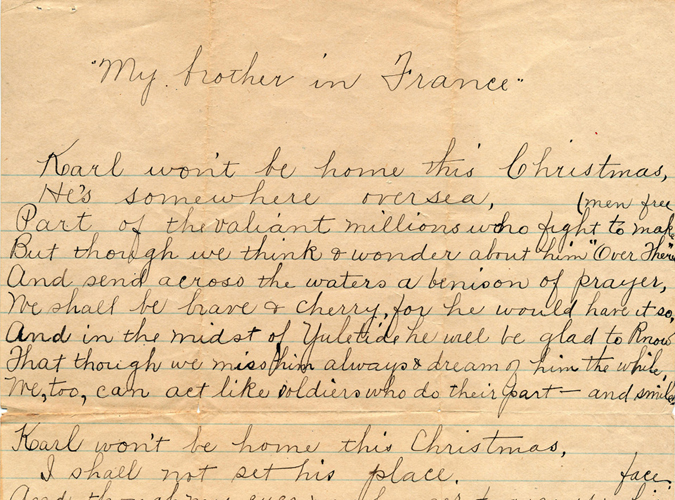 "My brother in France"
Karl won't be home this Christmas,
He's somewhere oversea, (men free
Part of the valiant millions who fight to make
But though we think & wonder about him "Over There"
And send across the waters a benison of prayer,
We shall be brave & cherry, for he would have it so,
And in the midst of Yuletide he will be glad to know
That though we miss him always & dream of him the while,
We, too, can act like soldiers who do their part — and smile
Karl won't be home this Christmas,
I shall not set his place. face.
And though my eyes